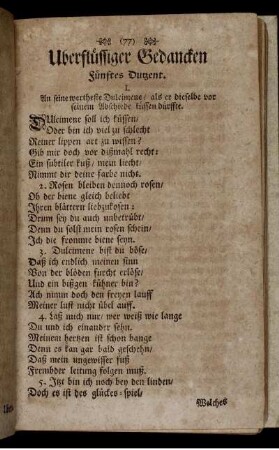 (77)
Uberflüssiger Gedancken
Fünftes Dutzent.
I.
An seine wertheste Dulcimene/ als er dieselbe vor
seinem Abschiede küssen durffte.
DUlcimene soll ich küssen/
Oder bin ich viel zu schlecht
Meiner lippen art zu wissen?
Gib mir doch vor dißmahl recht:
Ein subtiler kuß/ mein liecht/
Nimmt dir deine farbe nicht.
2. Rosen bleiben dennoch rosen/
Ob der biene gleich beliebt
Ihren blättern liebzukosen:
Drum sey du auch unbetrübt/
Denn du solst mein rosen schein/
Ich die fromme biene seyn.
3. Dulcimene bist du böse/
Daß ich endlich meinen sinn
Von der blöden furcht erlöse/
Und ein bißgen kühner bin?
Ach nimm doch den freyen lauff
Meiner lust nicht übel auff.
4. Laß mich nur/ wer weiß wie lange
Du und ich einander sehn.
Meinem hertzen ist schon bange
Denn es kan gar bald geschehn/
Daß mein ungewisser fuß
Frembder leitung folgen muß.
5. Itzt bin ich noch bey den linden/
Doch es ist des glückes-spiel/
Welches